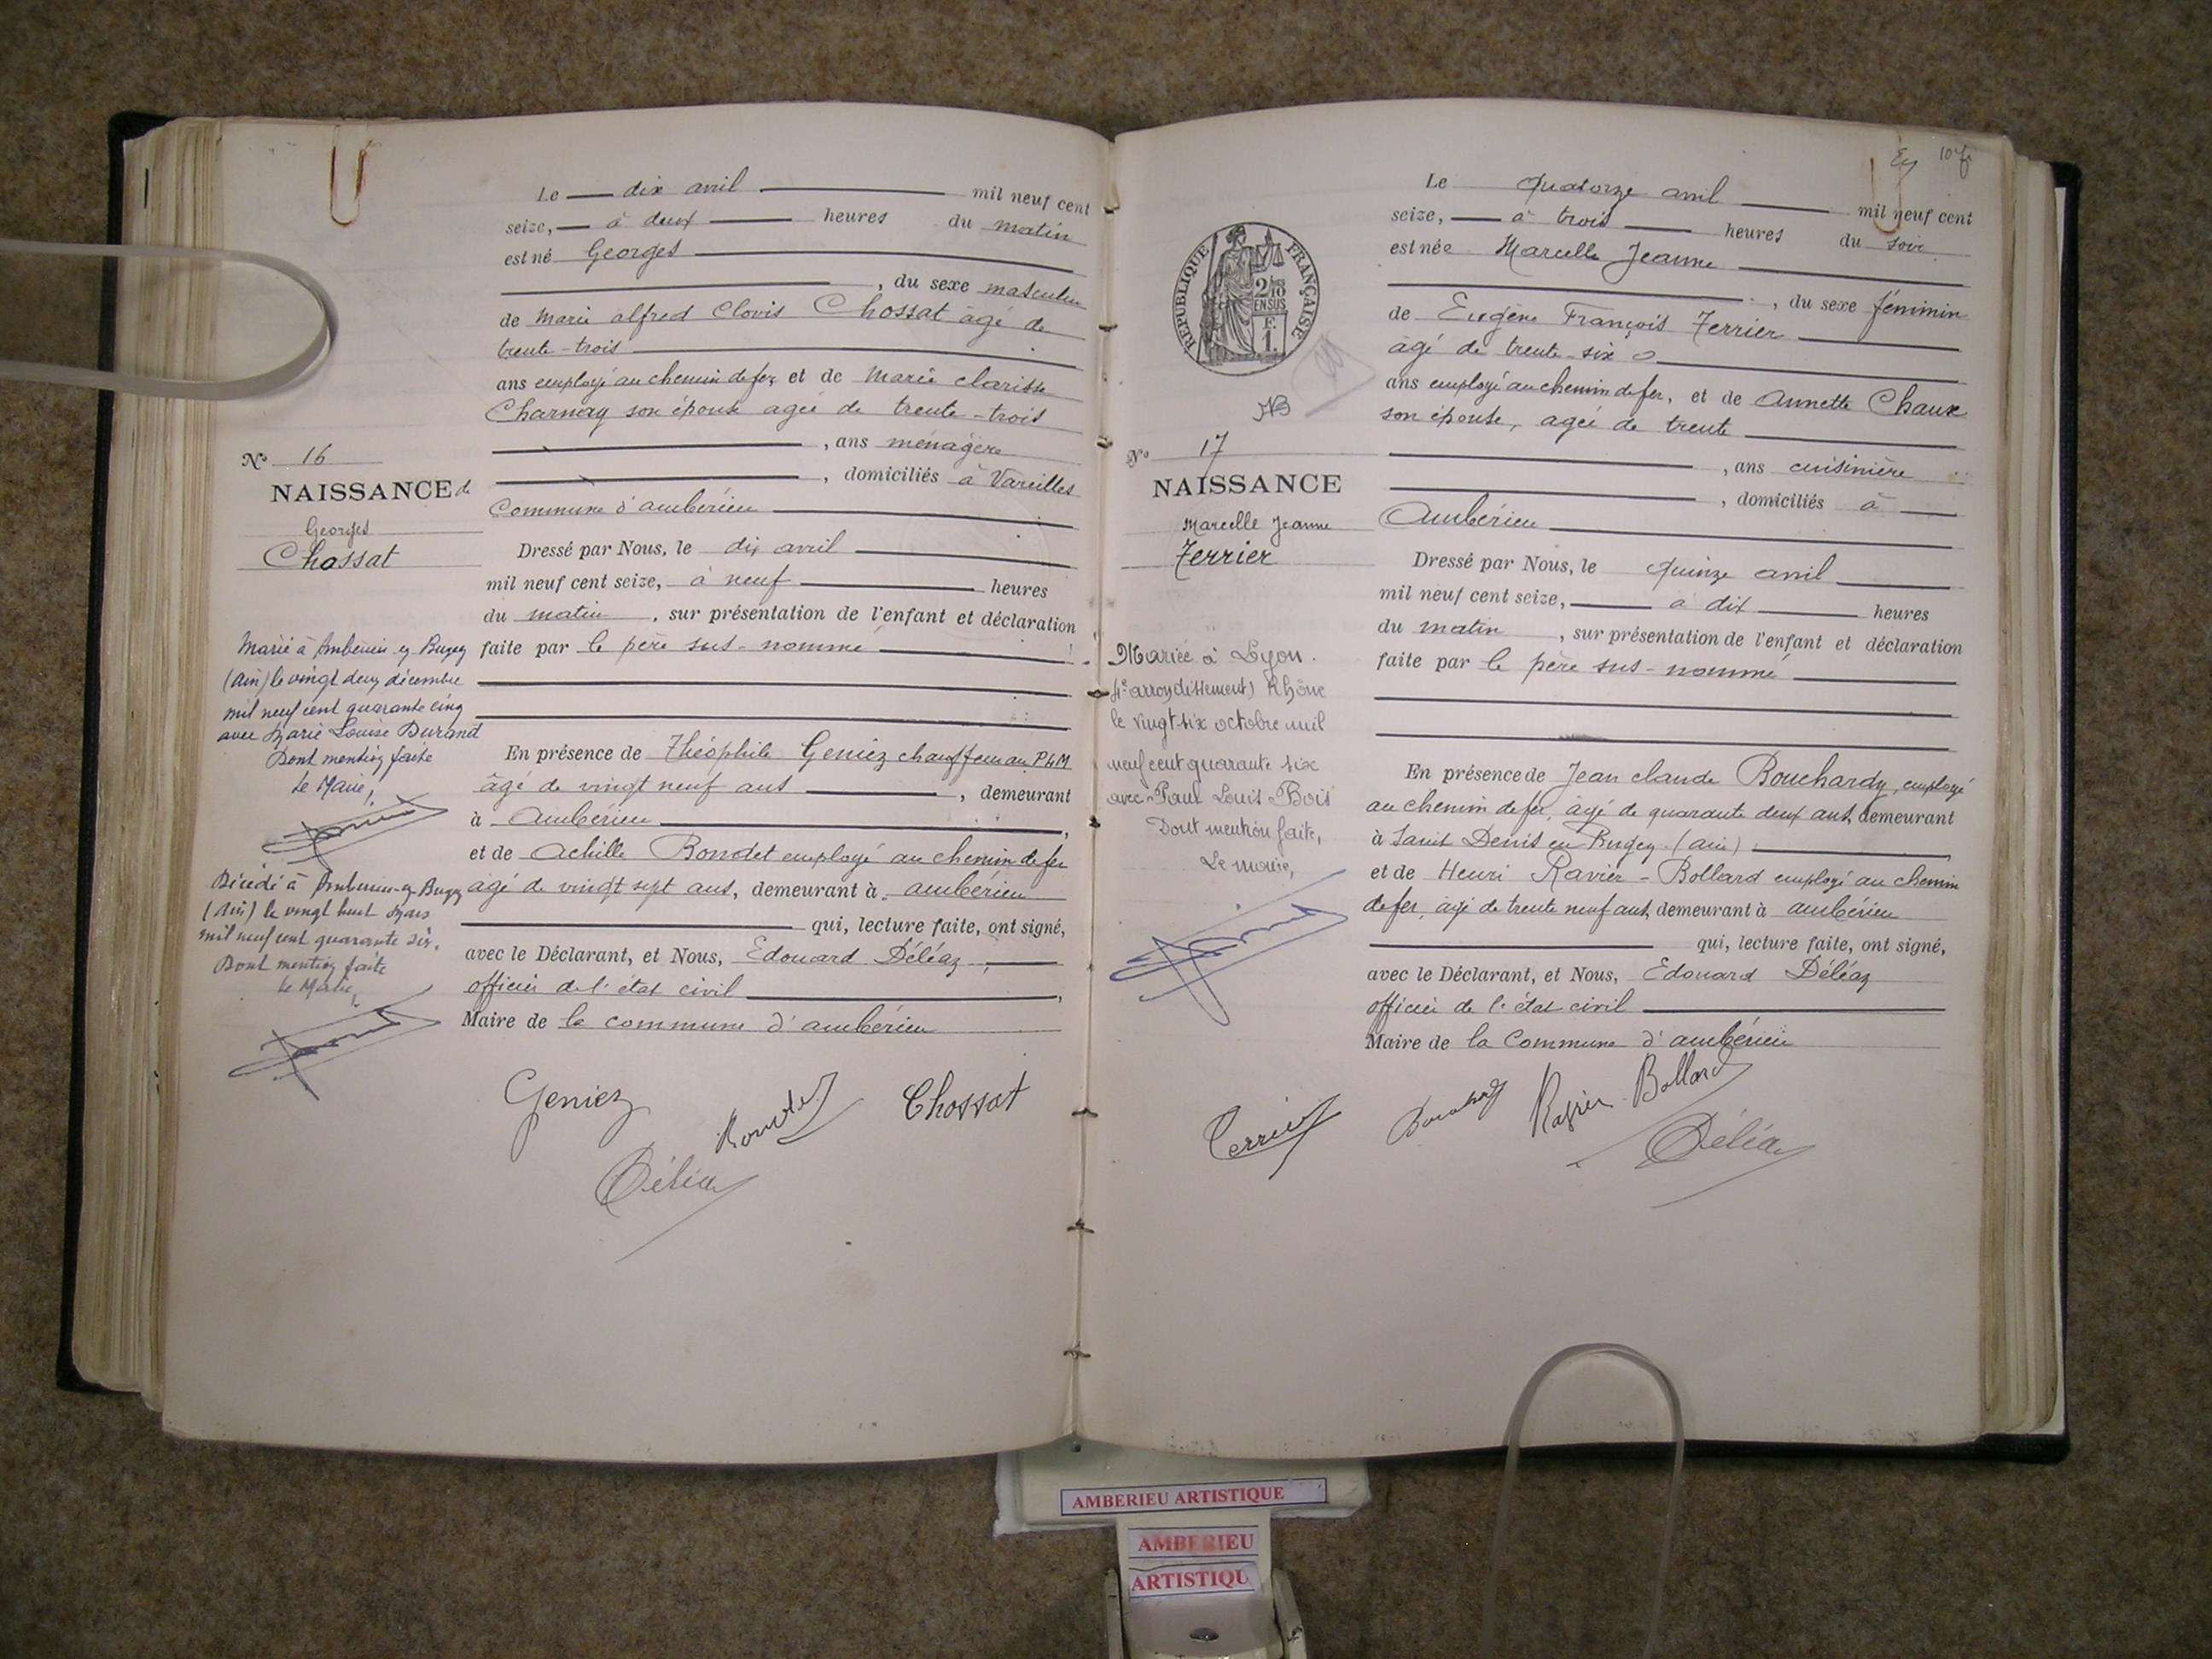 Le dix avril mil neuf cent
seize, à deux heures du matin
est né Georges
, du sexe masculin
de Marie alfred Clovis Chossat âgé de
trente-trois
ans employé au chemin de fer et de Marie clarisse
Charnay son épouse agée de trente-trois
, ans ménagère
, domiciliés à Vareilles
Commune d'ambérieu
Dressé par Nous, le dix avril
mil neuf cent seize, à neuf heures
du matin, sur présentation de l'enfant et déclaration
faite par le père sus-nommé
En présence de Théophile Geniez chauffeur au PLM
âgé de vingt neuf ans, demeurant
à Ambérieu,
et de Achille Rondet employé au chemin de fer
agé de vingt sept ans, demeurant à ambérieu
qui, lecture faite, ont signé,
avec le Déclarant, et Nous, Edouard Déléaz,
officier de l'état civil,
Maire de la commune d'ambérieu
Geniez
Rondet
Chossat
Déléaz
No 16
NAISSANCE de
Georges
Chossat
Marié à Ambérieu-en-Bugey
(Ain) le vingt deux décembre
mil neuf cent quarante cinq
avec Marie Louise Durand
Dont mention faite
Le Maire,
Décédé à Ambérieu-en-Bugey
(Ain) le vingt huit Mars
mil neuf cent quarante six.
Dont mention faite
Le Maire,
10 f
Le quatorze avril mil neuf cent
seize, à trois heures du soir
est née Marcelle Jeanne
, du sexe féminin
de Eugène François Terrier
âgé de trente-six
ans employé au chemin de fer, et de Annette Chaux
son épouse, agée de trente
, ans cuisinière
, domiciliés à
Ambérieu
Dressé par Nous, le quinze avril
mil neuf cent seize, à dix heures
du matin, sur présentation de l'enfant et déclaration
faite par le père sus-nommé
En présence de Jean claude Bouchardy, employé
au chemin de fer, âgé de quarante deux ans, demeurant
à Saint Denis en Bugey (ain),
et de Henri Ravier-Bollard employé au chemin
de fer, âgé de trente neuf ans, demeurant à ambérieu
qui, lecture faite, ont signé,
avec le Déclarant, et Nous, Edouard Déléaz
officier de l'état civil
Maire de la Commune d'ambérieu
Terrier
Bouchardy
Ravier-Bollard
Déléaz
REPUBLIQUE FRANÇAISE
2/10
EN SUS
F.
1.
No 17
NAISSANCE
Marcelle Jeanne
Terrier
Mariée à Lyon.
(4e arrondissement) Rhône
le vingt-six octobre mil
neuf cent quarante six
avec Paul Louis Bois
Dont mention faite,
Le maire,
AMBERIEU ARTISTIQUE
AMBERIEU
ARTISTIQU